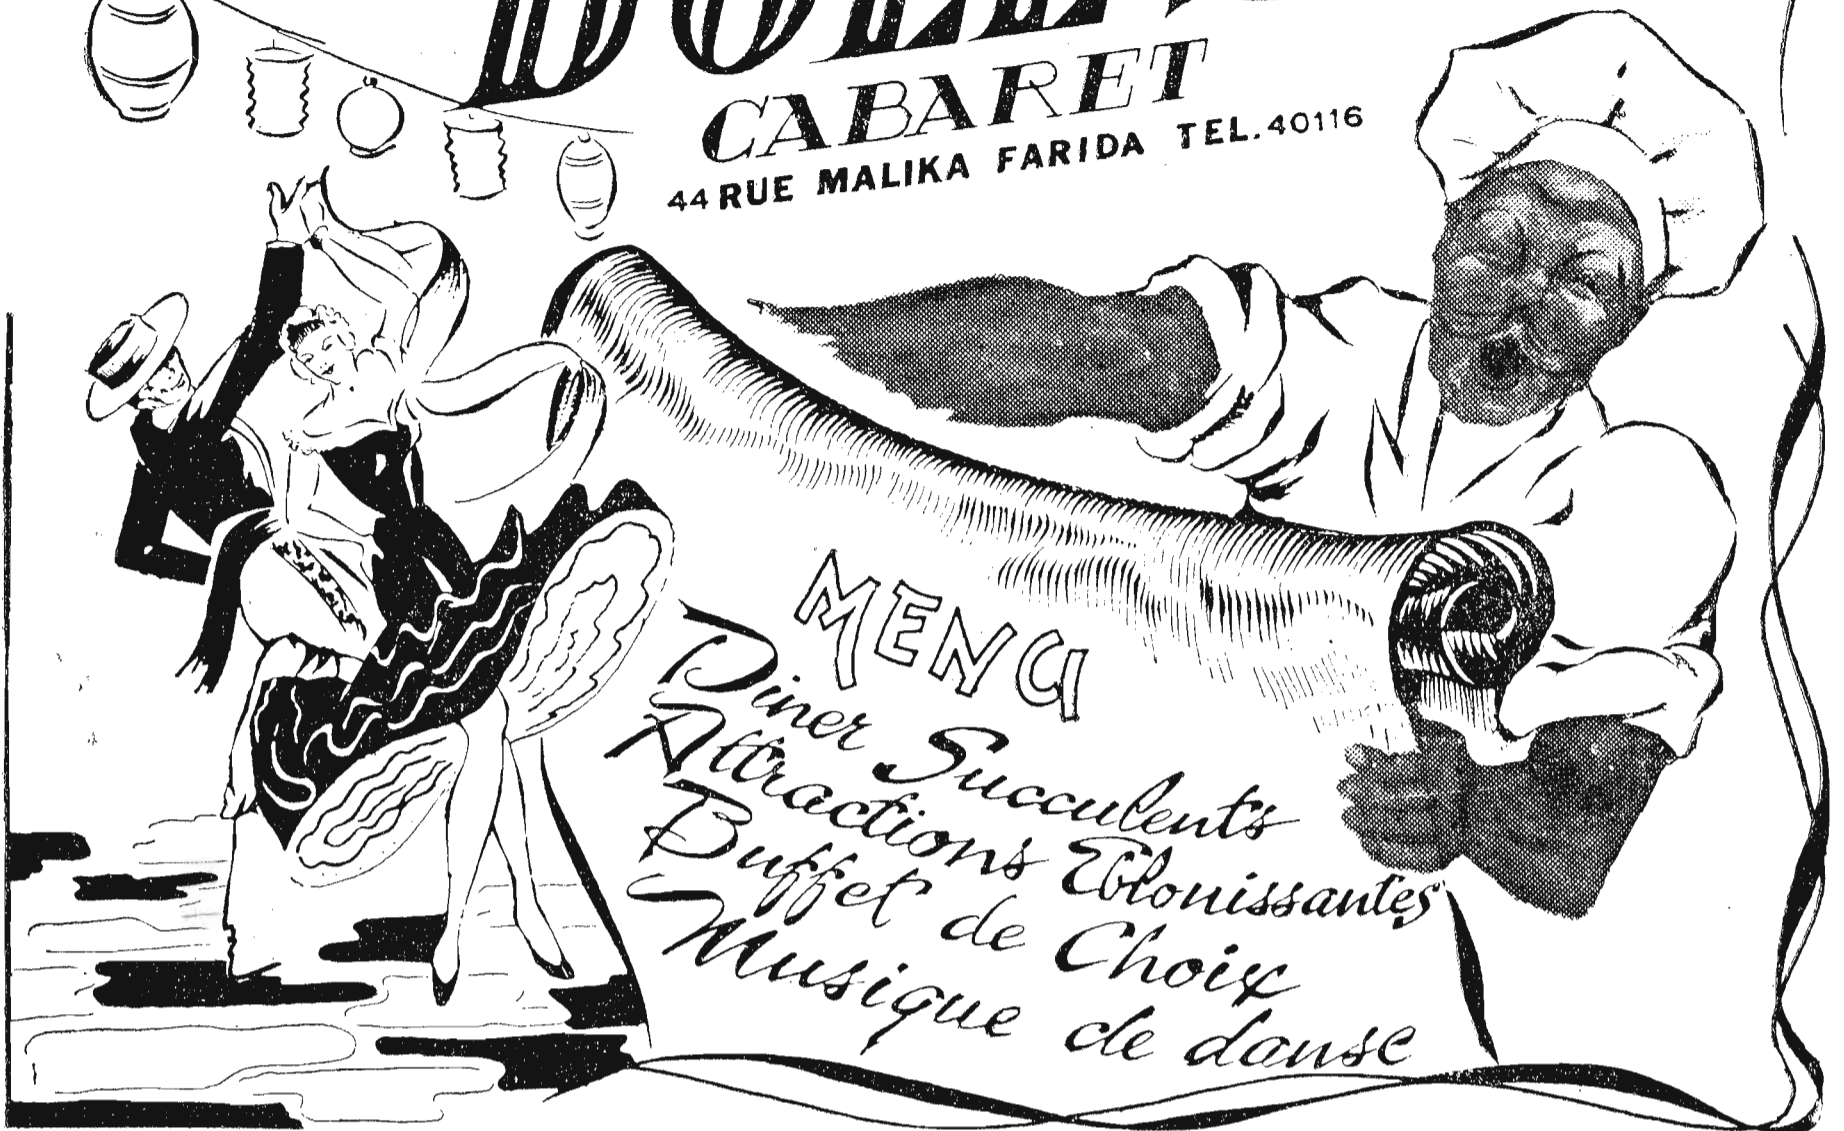 CABARET
44 RUE MALIKA FARIDA TEL. 40116
MENU
Diner Succulents
Attractions Eblouissantes
Buffet de Choix
Musique de danse